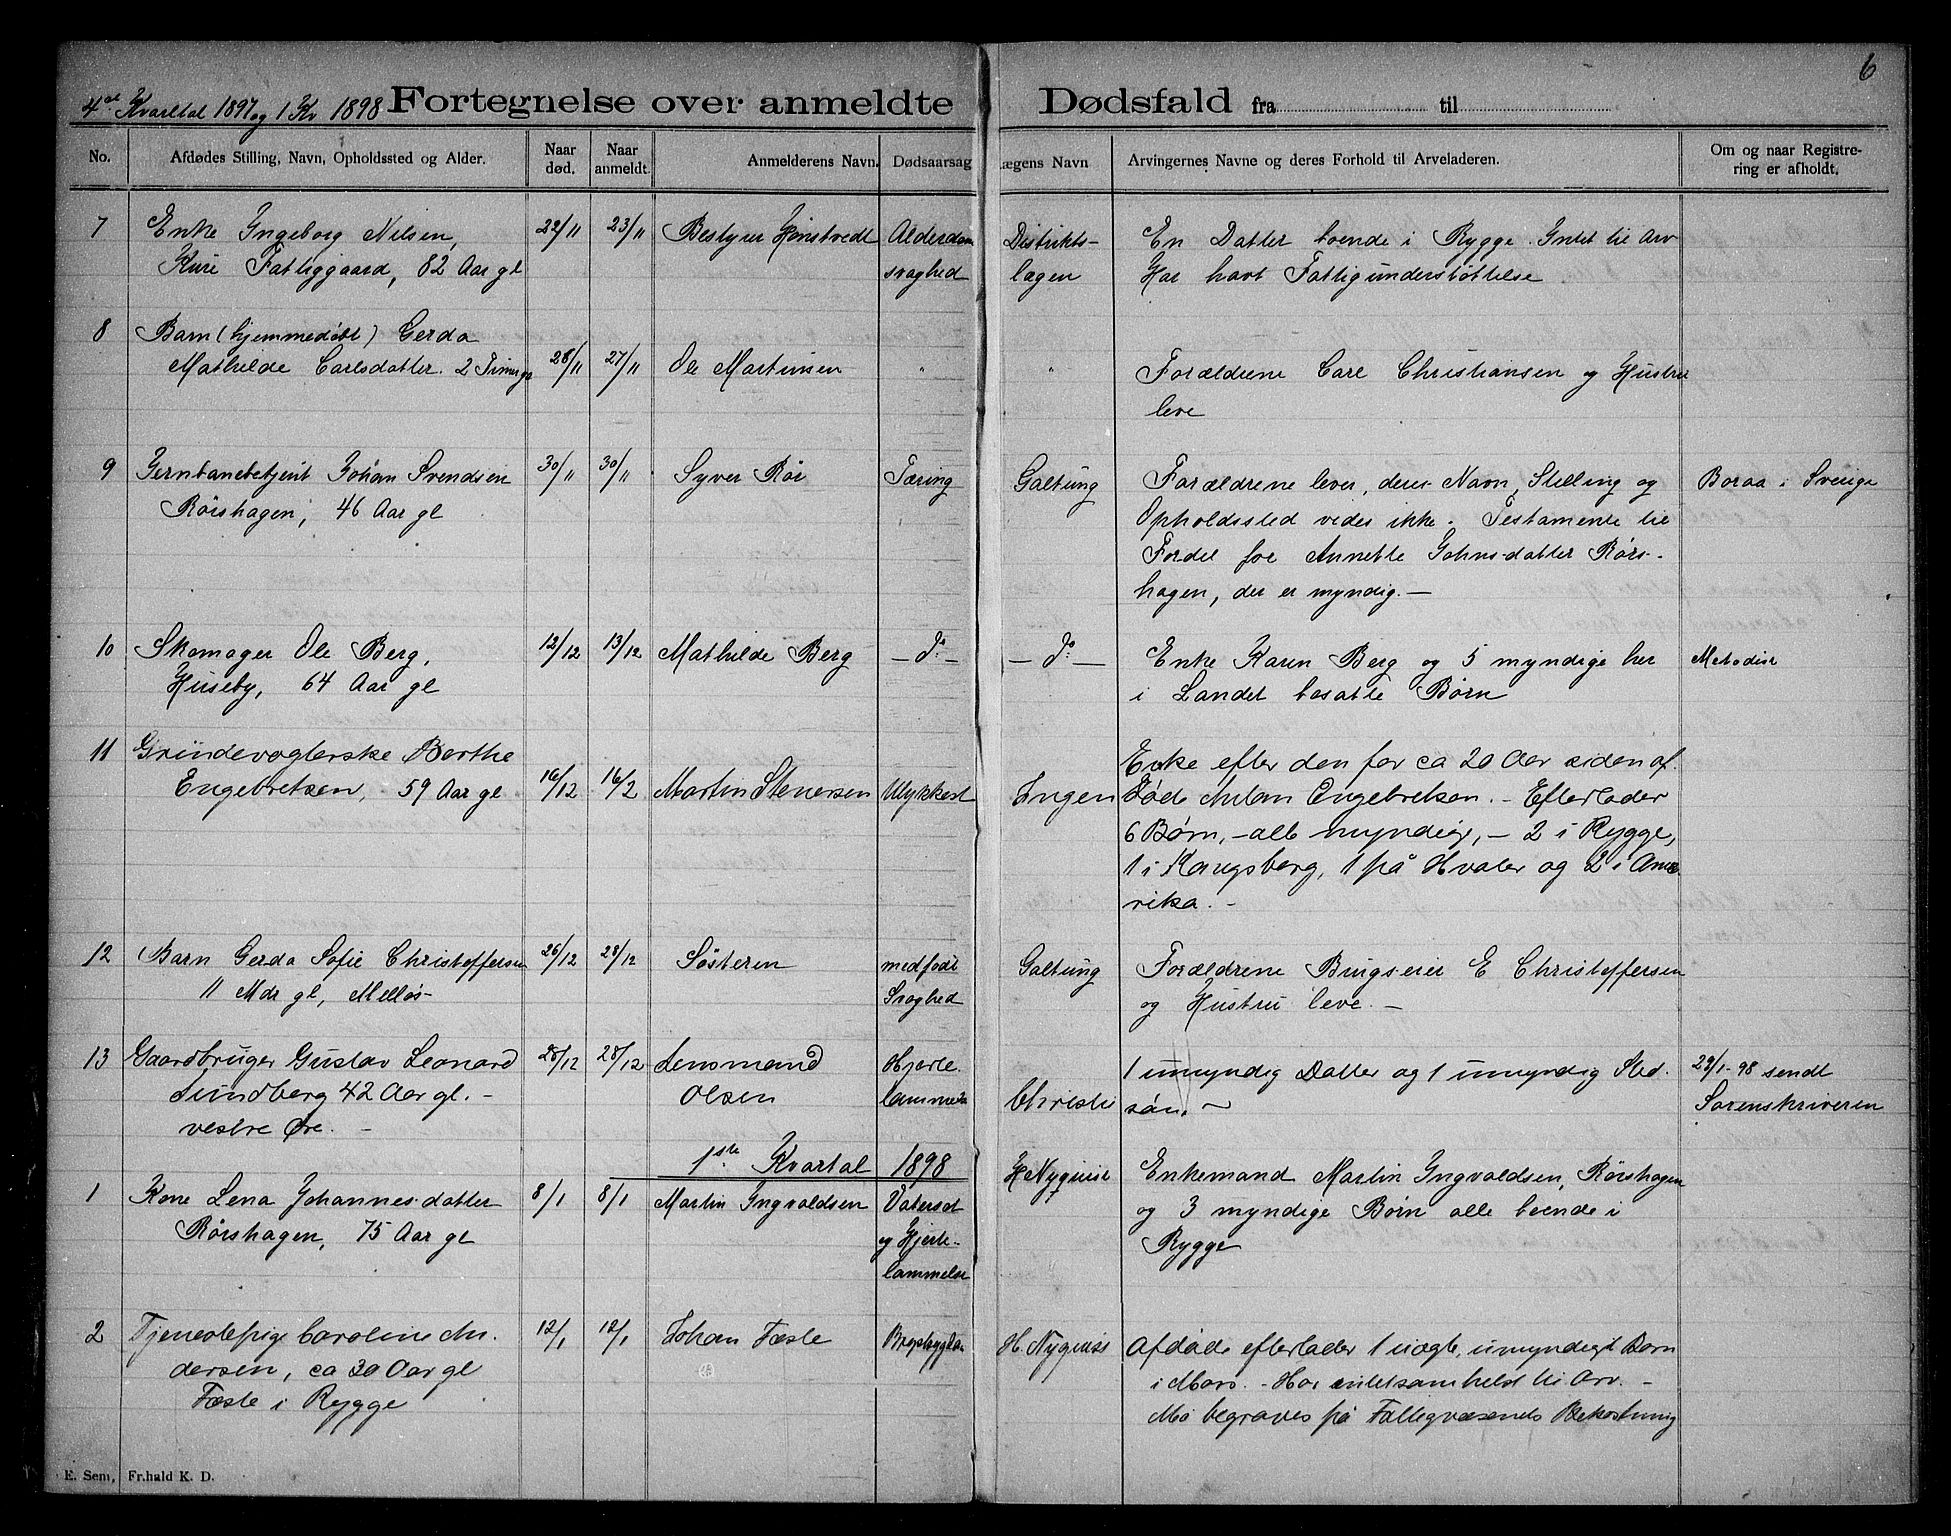 6
4de Kvartal 1897 og 1 Kv 1898 Fortegnelse over anmeldte Dødsfald fra til
No. Afdødes Stilling, Navn, Opholdssted og Alder. Naar død. Naar anmeldt. Anmelderens Navn. Dødsaarsag Lægens Navn Arvingernes Navne og deres Forhold til Arveladeren. Om og naar Registre-
ring er afholdt.
7 Enke Ingeborg Nilsen, 22/11 23/11 Bestyrer Hønstvedt Alderdom Distrikts- En Datter boende i Rygge. Intet til Arv
Kure Fattiggaard, 82 Aar gl svaghed lægen Har havt Fattigunderstøttelse
8 Barn (hjemmedøbt) Gerda
Mathilde Carlsdatter. 2 Timer gl 26/11 27/11 Ole Martinsen " " Forældrene Carl Christiansen og Hustru
leve
9 Jernbanebetjent Johan Svendsen 30/11 30/11 Syver Rør Tæring Galtung Forældrene lever, deres Navn, Stilling og Boraa i Sverige
Rørshagen, 46 Aar gl Opholdssted vedes ikke. Testamente til
Fordel for Annette Johnsdatter Rørs-
hagen, der er myndig. —
10 Skomager Ole Berg, 12/12 13/12 Mathilde Berg — Do — — Do — Enke Karen Berg og 5 myndige her Metodist
Huseby, 64 Aar gl i Landet bosatte Børn
11 Grindevogterske Berthe Enke efter den for ca 20 Aar siden af-
Engebretsen, 59 Aar gl 16/12 16/12 Martin Stenersen Ulykkest Ingen døde Anton Engebretsen. — Efterlader
6 Børn, — alle myndige, — 2 i Rygge,
1 i Kongsberg, 1 på Hvaler og 2 i Ame-
rika. —
12 Barn Gerda Sofie Christoffersen 26/12 28/12 Søsteren medfødt Galtung Forældrene Brugseier E Christoffersen
11 Mdr gl, Melløs- Svaghed og Hustru leve. —
13 Gaardbruger Gustav Leonard 28/12 28/12 Lensmand Hjerte- 1 umyndig Datter og 1 umyndig Sted- 29/1-98 sendt
Lundberg 42 Aar gl. — Olsen lammelse Christie søn. — Sorenskriveren
vestre Øre. —
1ste Kvartal 1898
1 Kone Lena Johannesdatter 8/1 8/1 Martin Ingvaldsen Vatersot H Nyquist Enkemand Martin Ingvaldsen, Rørshagen
Rørshagen, 75 Aar gl og Hjerte- og 3 myndige Børn alle boende i
lammelse Rygge
2 Tjenestepige Caroline An- 12/1 12/1 Johan Fæste H. Nyquist Afdøde efterlader 1 uægte, umyndigt Barn
dersen, ca 30 Aar gl i Moss. — Har intetsomhelst til Arv. —
Fæste i Rygge Må begraves på Fattigvæsenets Bekostning
E. Sem, Fr.hald K. D.